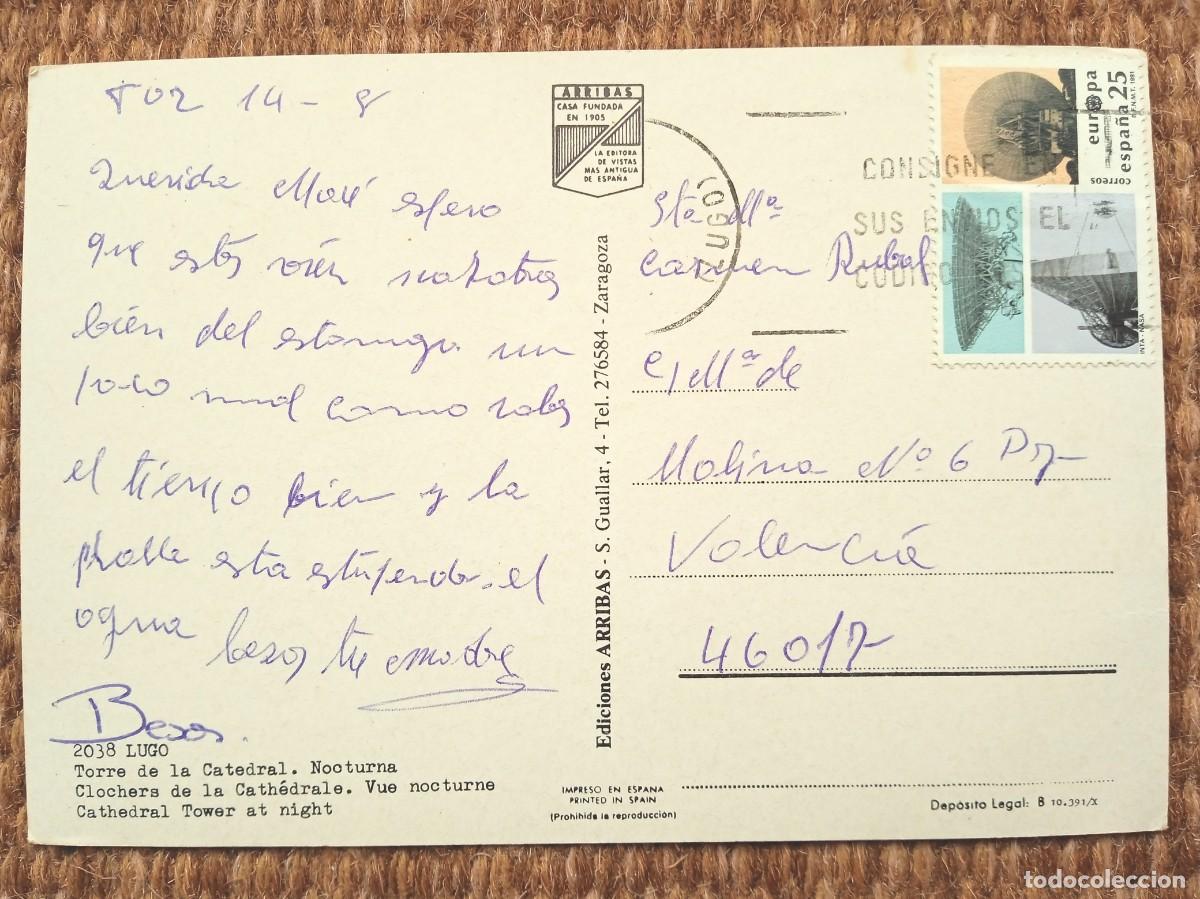 FOZ 14 - 8
Querida Mari espero
que estés vién nosotros
bién del estomago un
poco mal como sabes
el tiempo bien y la
playa esta estupenda. el
agua besos tu madre
Besos.
2038 LUGO
Torre de la Catedral. Nocturna
Clochers de la Cathédrale. Vue nocturne
Cathedral Tower at night
ARRIBAS
CASA FUNDADA
EN 1905
LA EDITORA
DE VISTAS
MAS ANTIGUA
DE ESPAÑA
Ediciones ARRIBAS - S. Guallar, 4 - Tel. 276584 - Zaragoza
IMPRESO EN ESPAÑA
PRINTED IN SPAIN
(Prohibida la reproducción)
(LUGO)
CONSIGNE EN
SUS ENVIOS EL
CODIGO
europa
españa 25
correos
F.N.M.T. 1991
INTA-NASA
Sta Mª
Carmen Rubal
C/ Mª de
Molina Nº 6
Valencia
46017
Depósito Legal: B 10.391/X
todocoleccion